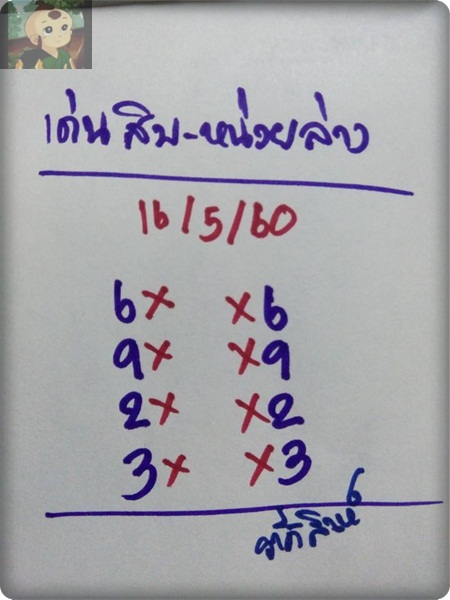 เด่นสิบ-หน่วยล่าง
16/5/60
6x x6
9x x9
2x x2
3x x3